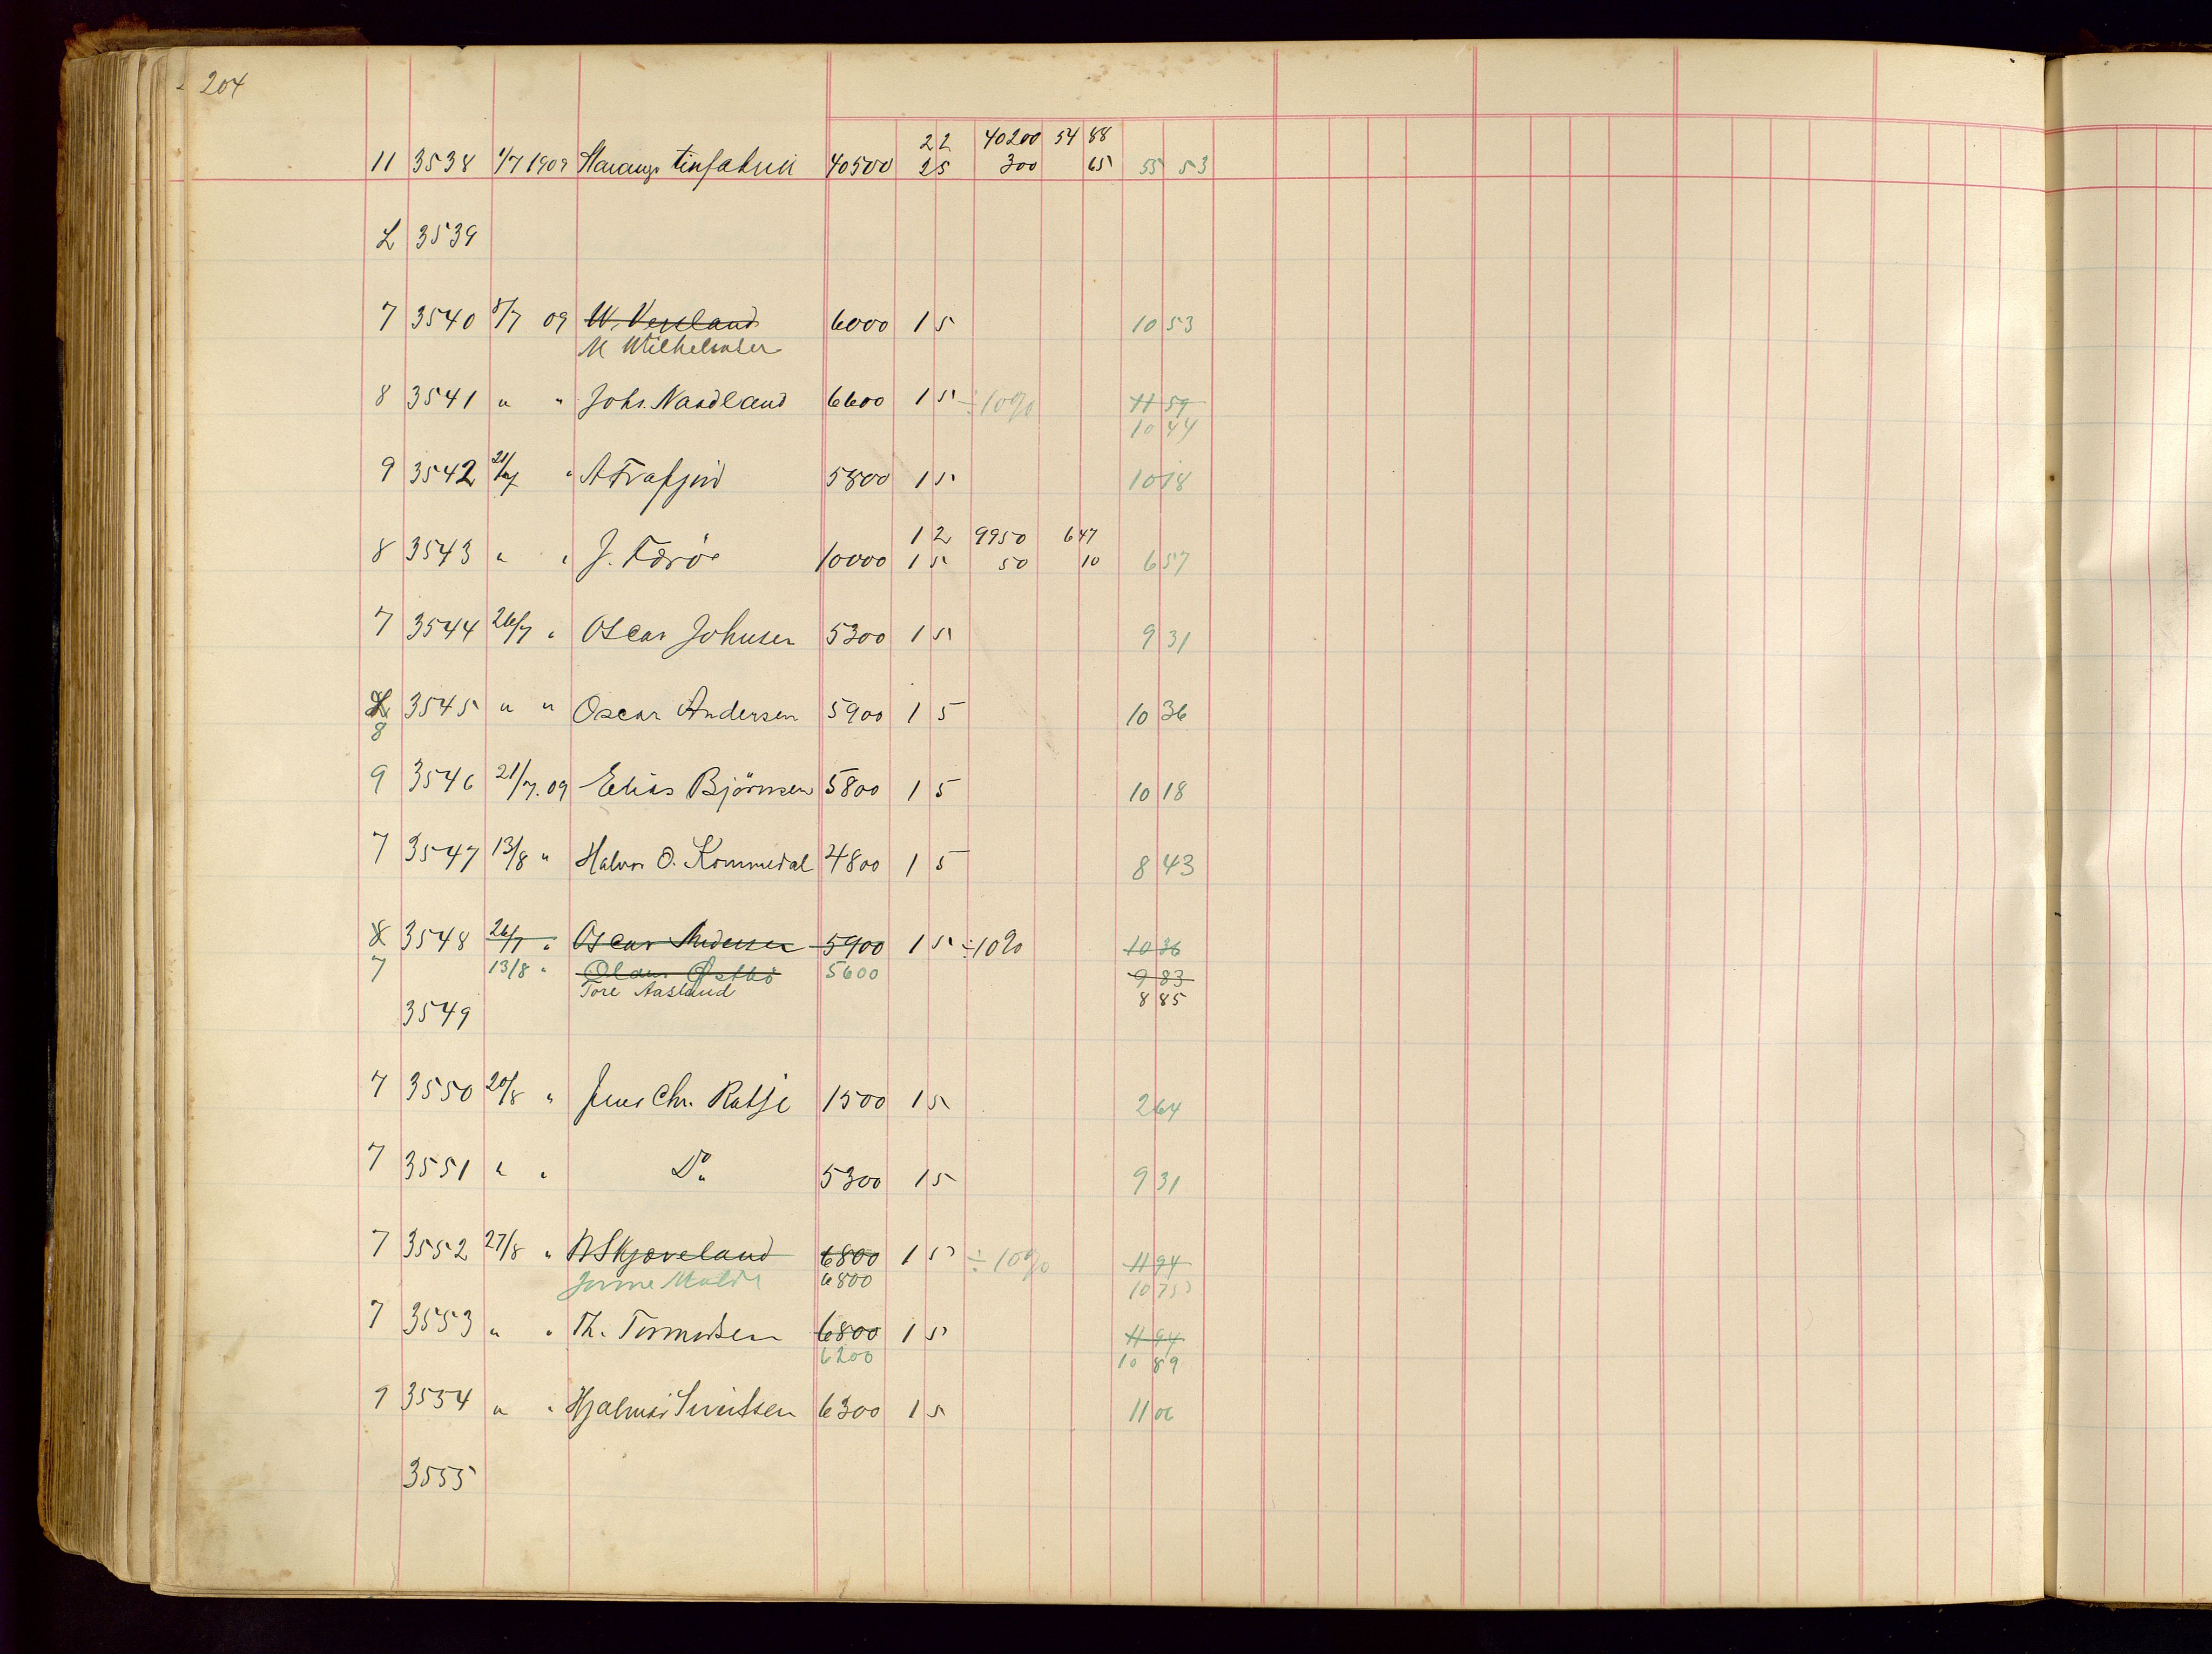 204
22 40200 54 88
11 3538 1/7 1909 Stavanger tinfabrik 40500 25 300 65 55 53
L 3539
7 3540 8/7 09 W. Vereland 6000 1 5 10 53
M Wilhelmsen
8 3541 " " Johs. Naadland 6600 1 5 ÷10% 11 59
10 44
9 3542 21/7 " A Frafjord 5800 1 5 10 18
1 2 9950 6 47
8 3543 " " J. Færöe 10000 1 5 50 10 6 57
7 3544 26/7 " Oscar Johnsen 5300 1 5 9 31
L 3545 " " Oscar Andersen 5900 1 5 10 36
8
9 3546 21/7. 09 Elias Björnsen 5800 1 5 10 18
7 3547 13/8 " Halvor O. Kommedal 4800 1 5 8 43
8 3548 26/7 " Oscar Andersen 5900 1 5 ÷10% 10 36
7 13/8 " Olaus Østbö 5600 9 83
Tore Aasland 8 85
3549
7 3550 20/8 " Jens Chr. Ratje 1500 1 5 2 64
7 3551 " " Do. 5300 1 5 9 31
7 3552 27/8 " N Skjæveland 6800 1 5 ÷10% 11 94
Malde 6800 10 75
7 3553 " " Th. Tormodsen 6800 1 5 11 94
6200 10 89
9 3554 " " Hjalmar Sivertsen 6300 1 5 11 06
3555